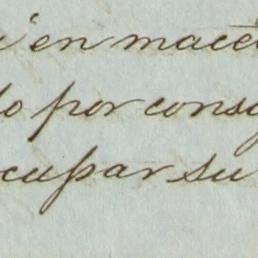 en mace
do por cons
cupar su